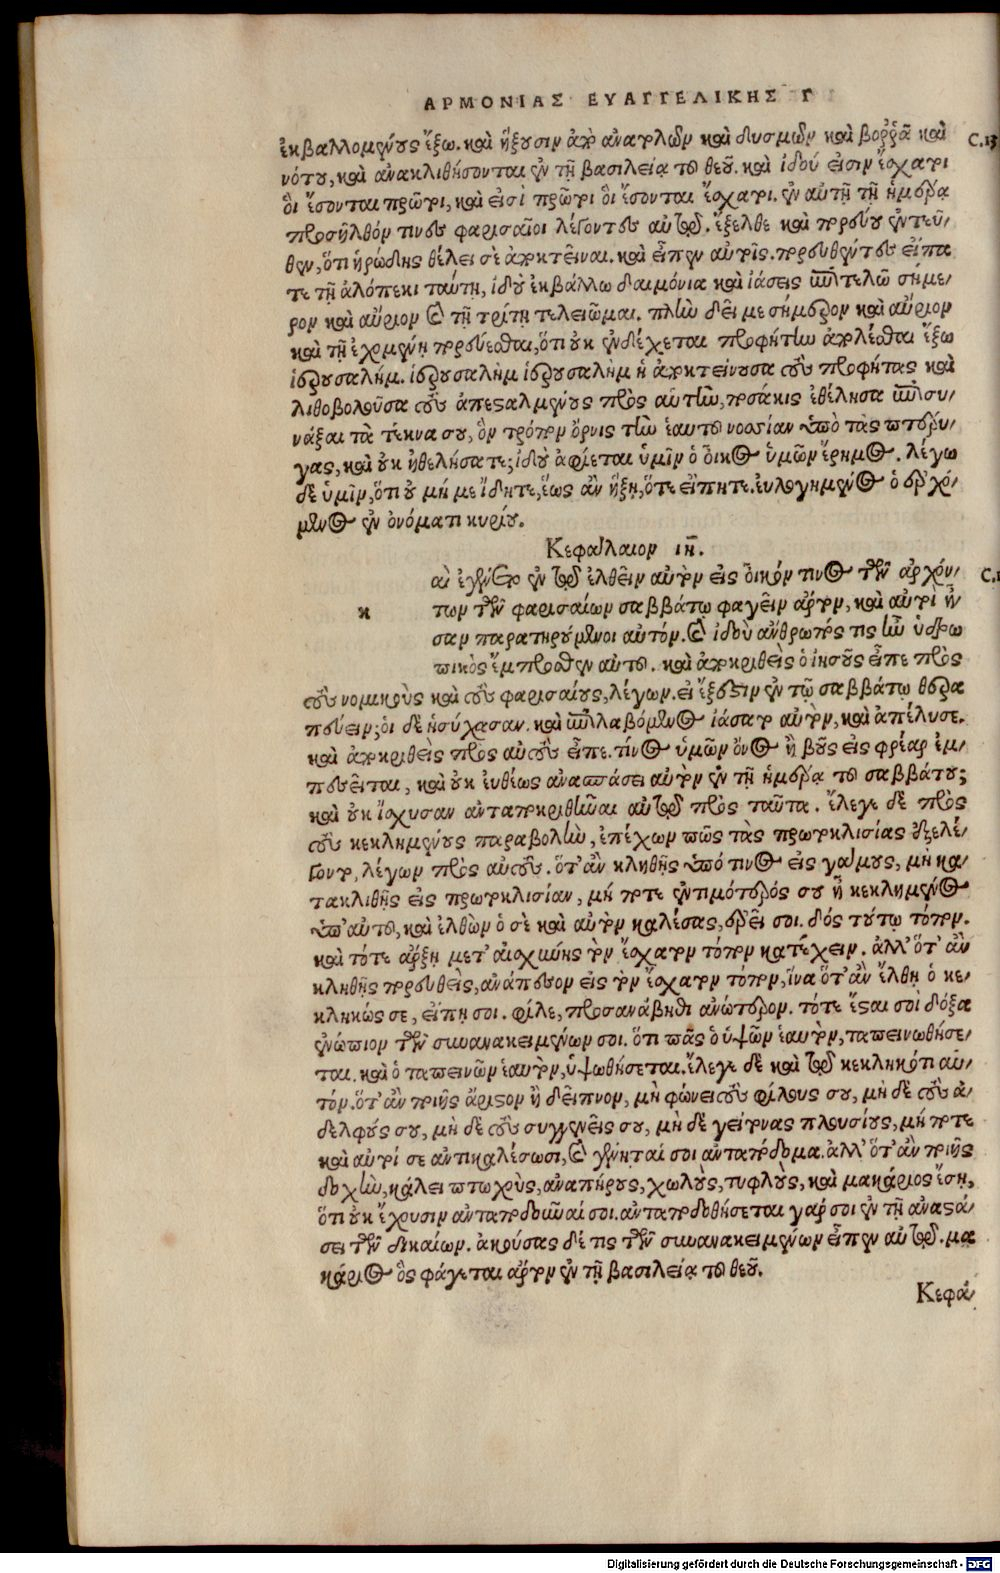 ΑΡΜΟΝΙΑΣ ΕΥΑΓΓΕΛΙΚΗΣ Γ
ἐκβαλλομένους ἔξω. καὶ ἥξουσιν ἀπὸ ἀνατολῶν καὶ δυσμῶν καὶ βοῤῥᾶ καὶ C.13
νότου, καὶ ἀνακλιθήσονται ἐν τῇ βασιλείᾳ τοῦ θεοῦ. καὶ ἰδού εἰσιν ἔσχατοι
οἳ ἔσονται πρῶτοι, καὶ εἰσὶ πρῶτοι οἳ ἔσονται ἔσχατοι. ἐν αὐτῇ τῇ ἡμέρᾳ
προσῆλθόν τινες φαρισαῖοι λέγοντες αὐτῷ. ἔξελθε καὶ πορεύου ἐντεῦ/
θεν, ὅτι ἡρώδης θέλει σὲ ἀποκτεῖναι. καὶ εἶπεν αὐτοῖς. πορευθέντες εἴπα
τε τῇ ἀλόπεκι ταύτῃ, ἰδοὺ ἐκβάλλω δαιμόνια καὶ ἰάσεις ἐπιτελῶ σήμε/
ρον καὶ αὔριον καὶ τῇ τρίτῃ τελειῶμαι. πλὴν δεῖ με σήμερον καὶ αὔριον
καὶ τῇ ἐχομένῃ πορεύεσθαι, ὅτι οὐκ ἐνδέχεται προφήτην ἀπολέσθαι ἔξω
ἱερουσαλήμ. ἱερουσαλὴμ ἱερουσαλὴμ ἡ ἀποκτείνουσα τοὺς προφήτας καὶ
λιθοβολοῦσα τοὺς ἀπεσταλμένους πρὸς αὐτὴν, ποσάκις ἐθέλησα ἐπισυ/
νάξαι τὰ τέκνα σου, ὃν τρόπον ὄρνις τὴν ἑαυτοῦ νοσσίαν ὑπὸ τὰς πτέρυ/
γας, καὶ οὐκ ἠθελήσατε; ἰδοὺ ἀφίεται ὑμῖν ὁ οἶκος ὑμῶν ἔρημος. λέγω
δὲ ὑμῖν, ὅτι οὐ μή με ἴδητε, ἕως ἂν ἥξῃ, ὅτε εἴπητε. ἐυλογημένος ὁ ἐρχό/
μενος ἐν ὀνόματι κυρίου.
Κεφάλαιον ιη̄.
αὶ ἐγένετο ἐν τῷ ἐλθεῖν αὐτὸν εἰς οἶκόν τινος τῶν ἀρχόν/
κ των τῶν φαρισαίων σαββάτῳ φαγεῖν ἄρτον, καὶ αὐτοὶ ἦ
σαν παρατηρούμενοι αὐτόν. καὶ ἰδοὺ ἄνθρωπός τις ἦν ὑδρω
πικὸς ἔμπροσθεν αὐτοῦ. καὶ ἀποκριθεὶς ὁ ἰησοῦς εἶπε πρὸς
τοὺς νομικοὺς καὶ τοὺς φαρισαίους, λέγων. εἰ ἔξεστιν ἐν τῷ σαββάτῳ θερα
πεύειν; οἱ δὲ ἡσύχασαν. καὶ ἐπιλαβόμενος ἰάσατο αὐτὸν, καὶ ἀπέλυσε.
καὶ ἀποκριθεὶς πρὸς αὐτοὺς εἶπε. τίνος ὑμῶν ὄνος ἢ βοῦς εἰς φρέαρ ἐμ/
πεσεῖται, καὶ οὐκ ἐυθέως ἀνασπάσει αὐτὸν ἐν τῇ ἡμέρᾳ τοῦ σαββάτου;
καὶ οὐκ ἴσχυσαν ἀνταποκριθῆναι αὐτῷ πρὸς ταῦτα. ἔλεγε δὲ πρὸς
τοὺς κεκλημένους παραβολὴν, ἐπέχων πῶς τὰς πρωτοκλισίας ἐξελέ/
γοντο, λέγων πρὸς αὐτούς. ὅτ' ἂν κληθῇς ὑπό τινος εἰς γάμους, μὴ κα/
τακλιθῇς εἰς πρωτοκλισίαν, μή ποτε ἐντιμότερός σου ᾖ κεκλημένος
ὑπ' αὐτοῦ, καὶ ἐλθὼν ὁ σὲ καὶ αὐτὸν καλέσας, ἐρεῖ σοι. δός τούτῳ τόπον.
καὶ τότε ἄρξῃ μετ' αἰσχύνης τὸν ἔσχατον τόπον κατέχειν. ἀλλ' ὅτ' ἂν
κληθῇς πορευθεὶς, ἀνάπεσον εἰς τὸν ἔσχατον τόπον, ἵνα ὅτ' ἂν ἔλθῃ ὁ κε/
κληκώς σε, εἴπῃ σοι. φίλε, προσανάβηθι ἀνώτερον. τότε ἔσται σοὶ δόξα
ἐνώπιον τῶν συνανακειμένων σοι. ὅτι πᾶς ὁ ὑψῶν ἑαυτὸν, ταπεινωθήσε/
ται. καὶ ὁ ταπεινῶν ἑαυτὸν, ὑψωθήσεται. ἔλεγε δὲ καὶ τῷ κεκληκότι αὐ/
τόν. ὅτ' ἂν ποιῇς ἄριστον ἢ δεῖπνον, μὴ φώνει τοὺς φίλους σου, μὴ δὲ τοὺς ἀ/
δελφούς σου, μὴ δὲ τοὺς συγγενεῖς σου, μὴ δὲ γείτονας πλουσίους, μή ποτε
καὶ αὐτοί σε ἀντικαλέσωσι, καὶ γένηταί σοι ἀνταπόδομα. ἀλλ' ὅτ' ἂν ποιῇς
δοχὴν, κάλει πτωχοὺς, ἀναπήρους, χωλοὺς, τυφλοὺς, καὶ μακάριος ἔσῃ,
ὅτι οὐκ ἔχουσιν ἀνταποδοῦναί σοι. ἀνταποδοθήσεται γάρ σοι ἐν τῇ ἀναστά/
σει τῶν δικαίων. ἀκούσας δέ τις τῶν συνανακειμένων εἶπεν αὐτῷ. μα
κάριος ὃς φάγεται ἄρτον ἐν τῇ βασιλείᾳ τοῦ θεοῦ.
Κεφά/
Digitalisierung gefördert durch die Deutsche Forschungsgemeinschaft - DFG